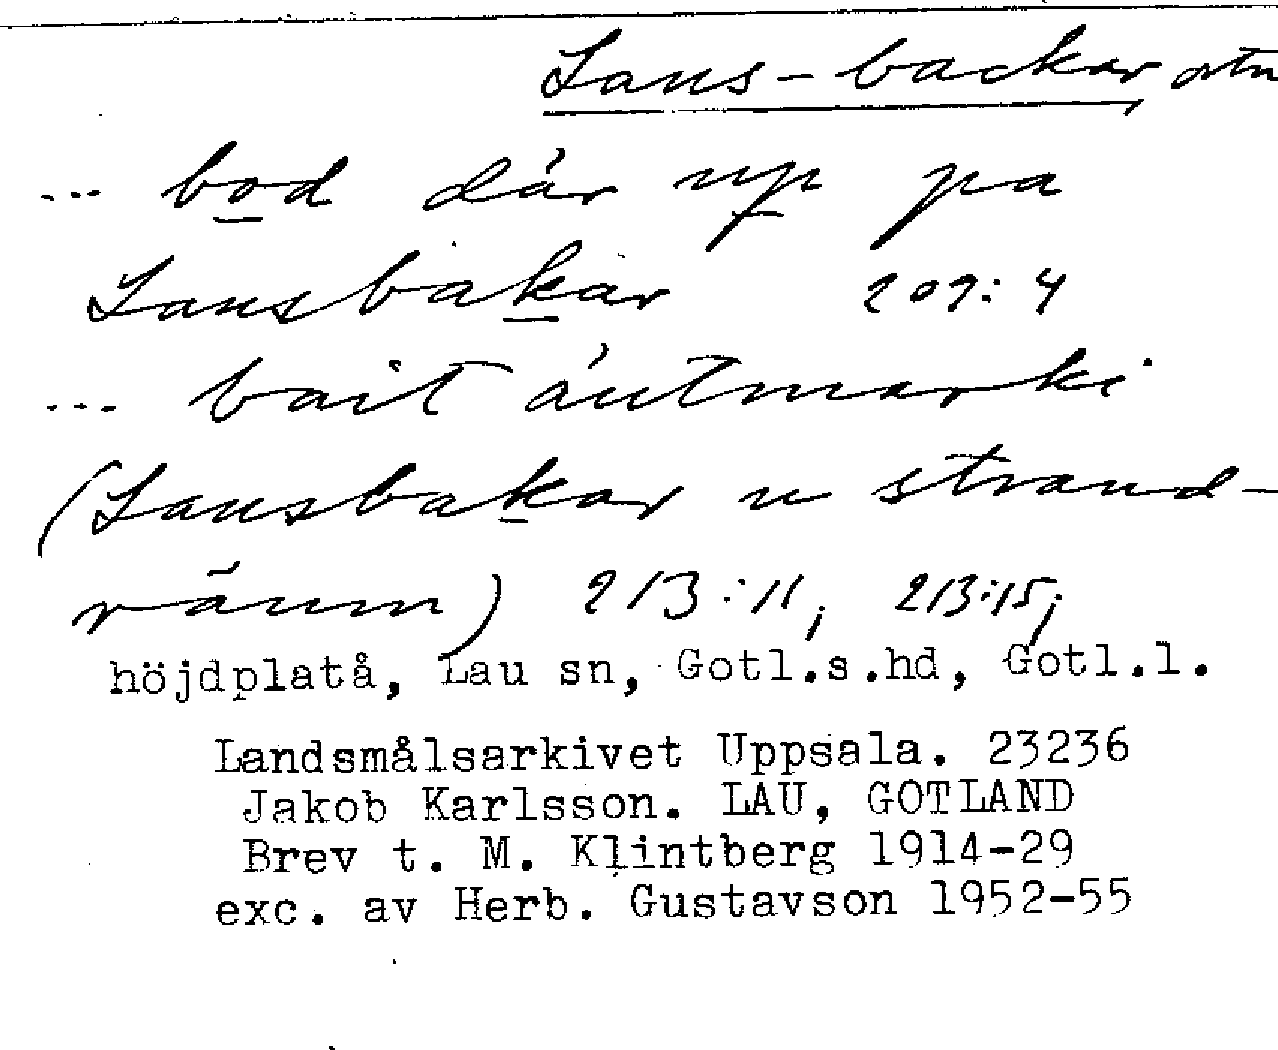 Laus-backar, ortn
... bod dǻr up pa
Lausbakar 209:4
... bait áutmarki
(Lausbakar u strand-
räum) 213:11; 213:15;
höjdplatå, Lau sn, Gotl.s.hd, Gotl.l.
Landsmålsarkivet Uppsala. 23236
Jakob Karlsson. LAU, GOTLAND
Brev t. M. Klintberg 1914-29
exc. av Herb. Gustavson 1952-55